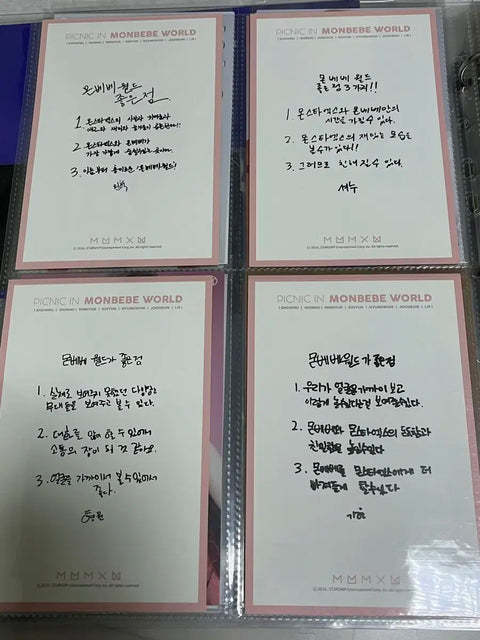 PICNIC IN MONBEBE WORLD
( SHOWNU | WONHO | MINHYUK | KIHYUN | HYUNGWON | JOOHEON | I.M )
몬베베 월드
좋은점
1. 몬스타엑스의
2. 몬스타엑스와 몬베베가
3. 이름부터 몬베베월드!
민혁
© 2016. STARSHIP Entertainment Corp, Inc. All rights reserved.
PICNIC IN MONBEBE WORLD
( SHOWNU | WONHO | MINHYUK | KIHYUN | HYUNGWON | JOOHEON | I.M )
몬베베 월드
좋은점 3가지!!
1. 몬스타엑스와 몬베베만의
시간을 가질 수 있다.
2. 몬스타엑스의 재밌는 모습을
볼 수가 있다!!
3. 그러므로 친해질 수 있다.
셔누
© 2016. STARSHIP Entertainment Corp, Inc. All rights reserved.
PICNIC IN MONBEBE WORLD
( SHOWNU | WONHO | MINHYUK | KIHYUN | HYUNGWON | JOOHEON | I.M )
몬베베 월드가 좋은점
1. 실제로 보여주지 못했던 다양한
무대들을 보여주고 볼 수 있다.
2. 대화를 많이 할 수 있어서
소통의 장이 될 것 같아요.
3. 얼굴을 가까이에서 볼 수 있어서
좋다.
형원
© 2016. STARSHIP Entertainment Corp, Inc. All rights reserved.
PICNIC IN MONBEBE WORLD
( SHOWNU | WONHO | MINHYUK | KIHYUN | HYUNGWON | JOOHEON | I.M )
몬베베월드가 좋은점
1. 우리가 얼굴을 가까이 보고
이렇게 놀 수 있다는걸 보여줄 수 있다.
2. 몬베베와 몬스타엑스의
친밀함을 높일 수 있다
3. 몬베베를 몬스타엑스에게 더
빠져들게 할 수 있다
기현
© 2016. STARSHIP Entertainment Corp, Inc. All rights reserved.